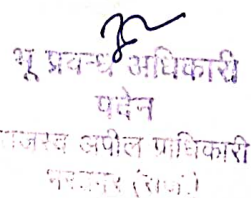 भू प्रबन्ध अधिकारी
पदेन
राजस्व अपील प्राधिकारी
(राज.)